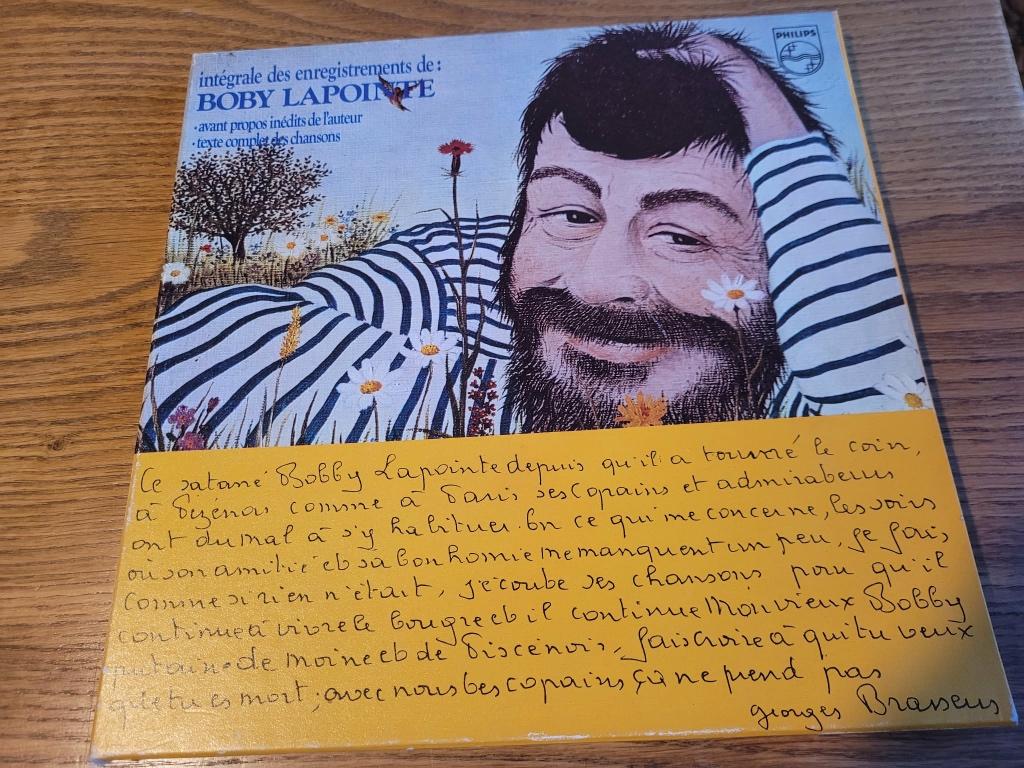 PHILIPS
intégrale des enregistrements de :
BOBY LAPOINTE
• avant propos inédits de l'auteur
• texte complet des chansons
Ce satané Bobby Lapointe depuis qu'il a tourné le coin,
à Pézénas comme à Paris ses copains et admirateurs
ont du mal à s'y habituer. En ce qui me concerne, les soirs
où son amitié et sa bonhomie me manquent un peu, je fais
comme si rien n'était, j'écoute ses chansons pour qu'il
continue à vivre le bougre et il continue Mon vieux Bobby
putain de moine et de Piscénois, fais croire à qui tu veux
que tu es mort ; avec nous tes copains ça ne prend pas
georges Brassens